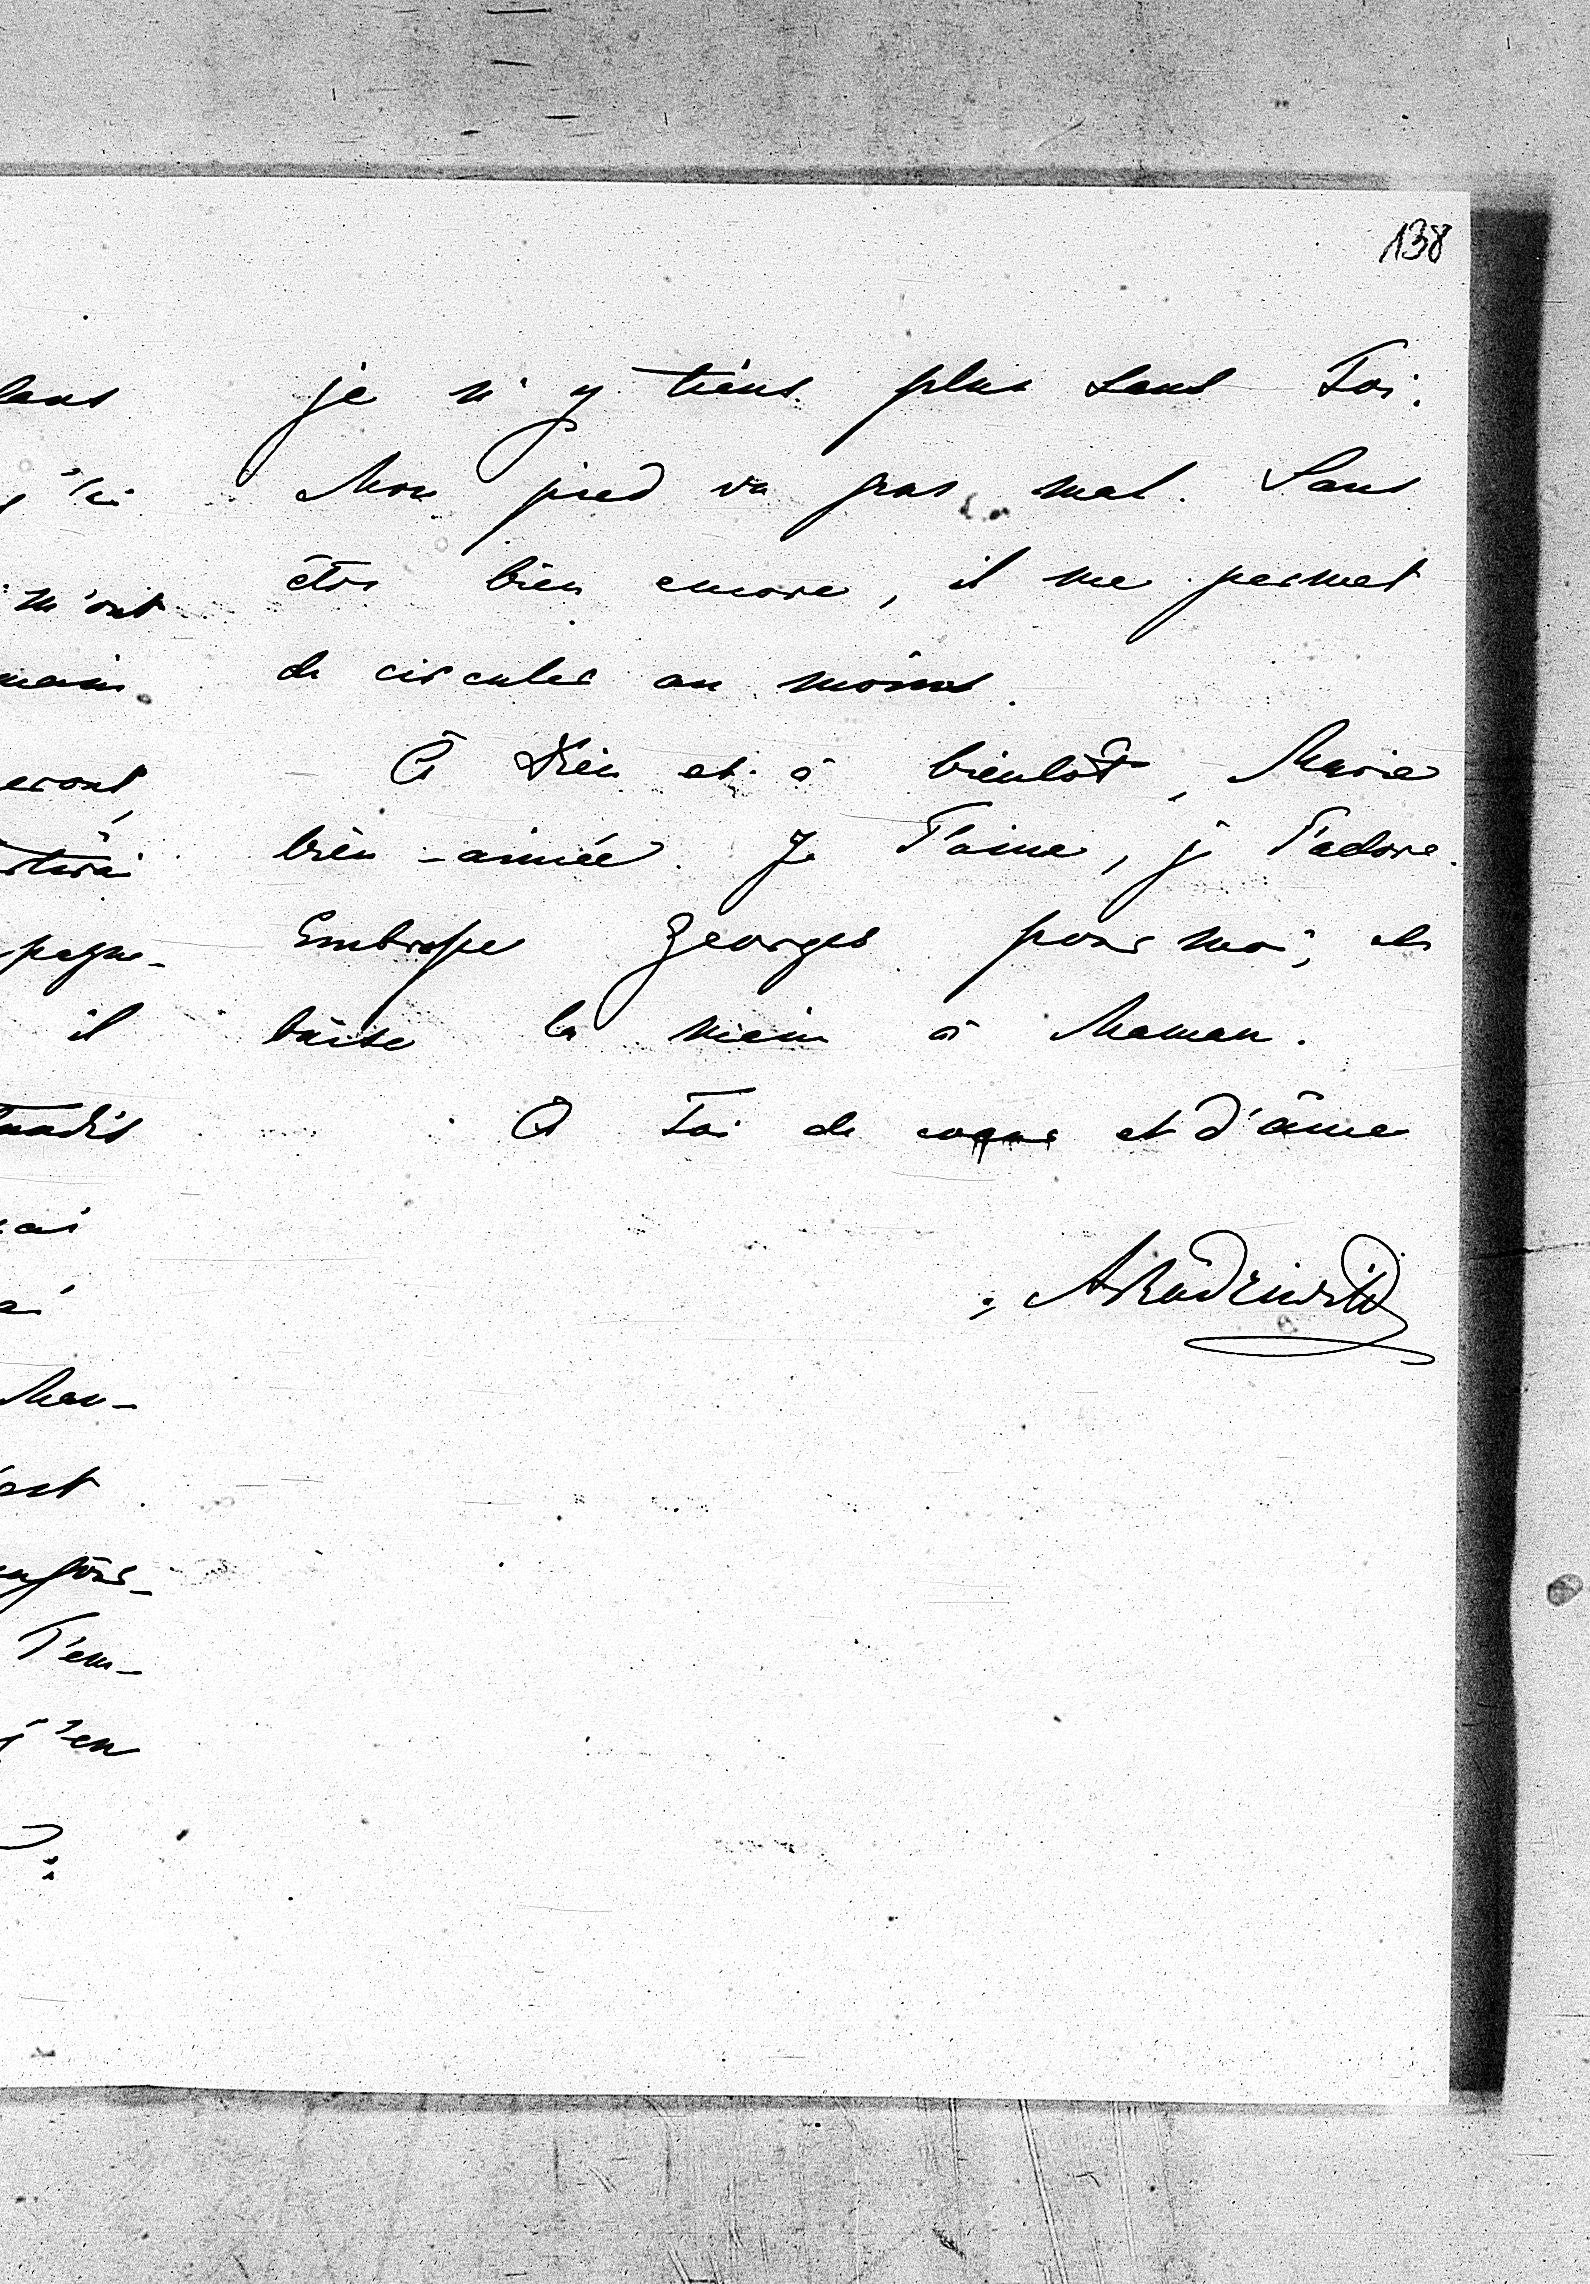 138
je n'y tiens plus sans Toi.
Mon pied va pas mal. Sans
être bien encore, il me permet
de circuler au moins.
À Dieu et à bientôt, Marie
bien-aimée. Je T'aime, je T'adore.
Embrasse Georges pour moi, et
baise la main à Maman.
À Toi de coeur et d'âme
ARadziwill
m'ont
eront,
pagne-
il
T'em-
j'en